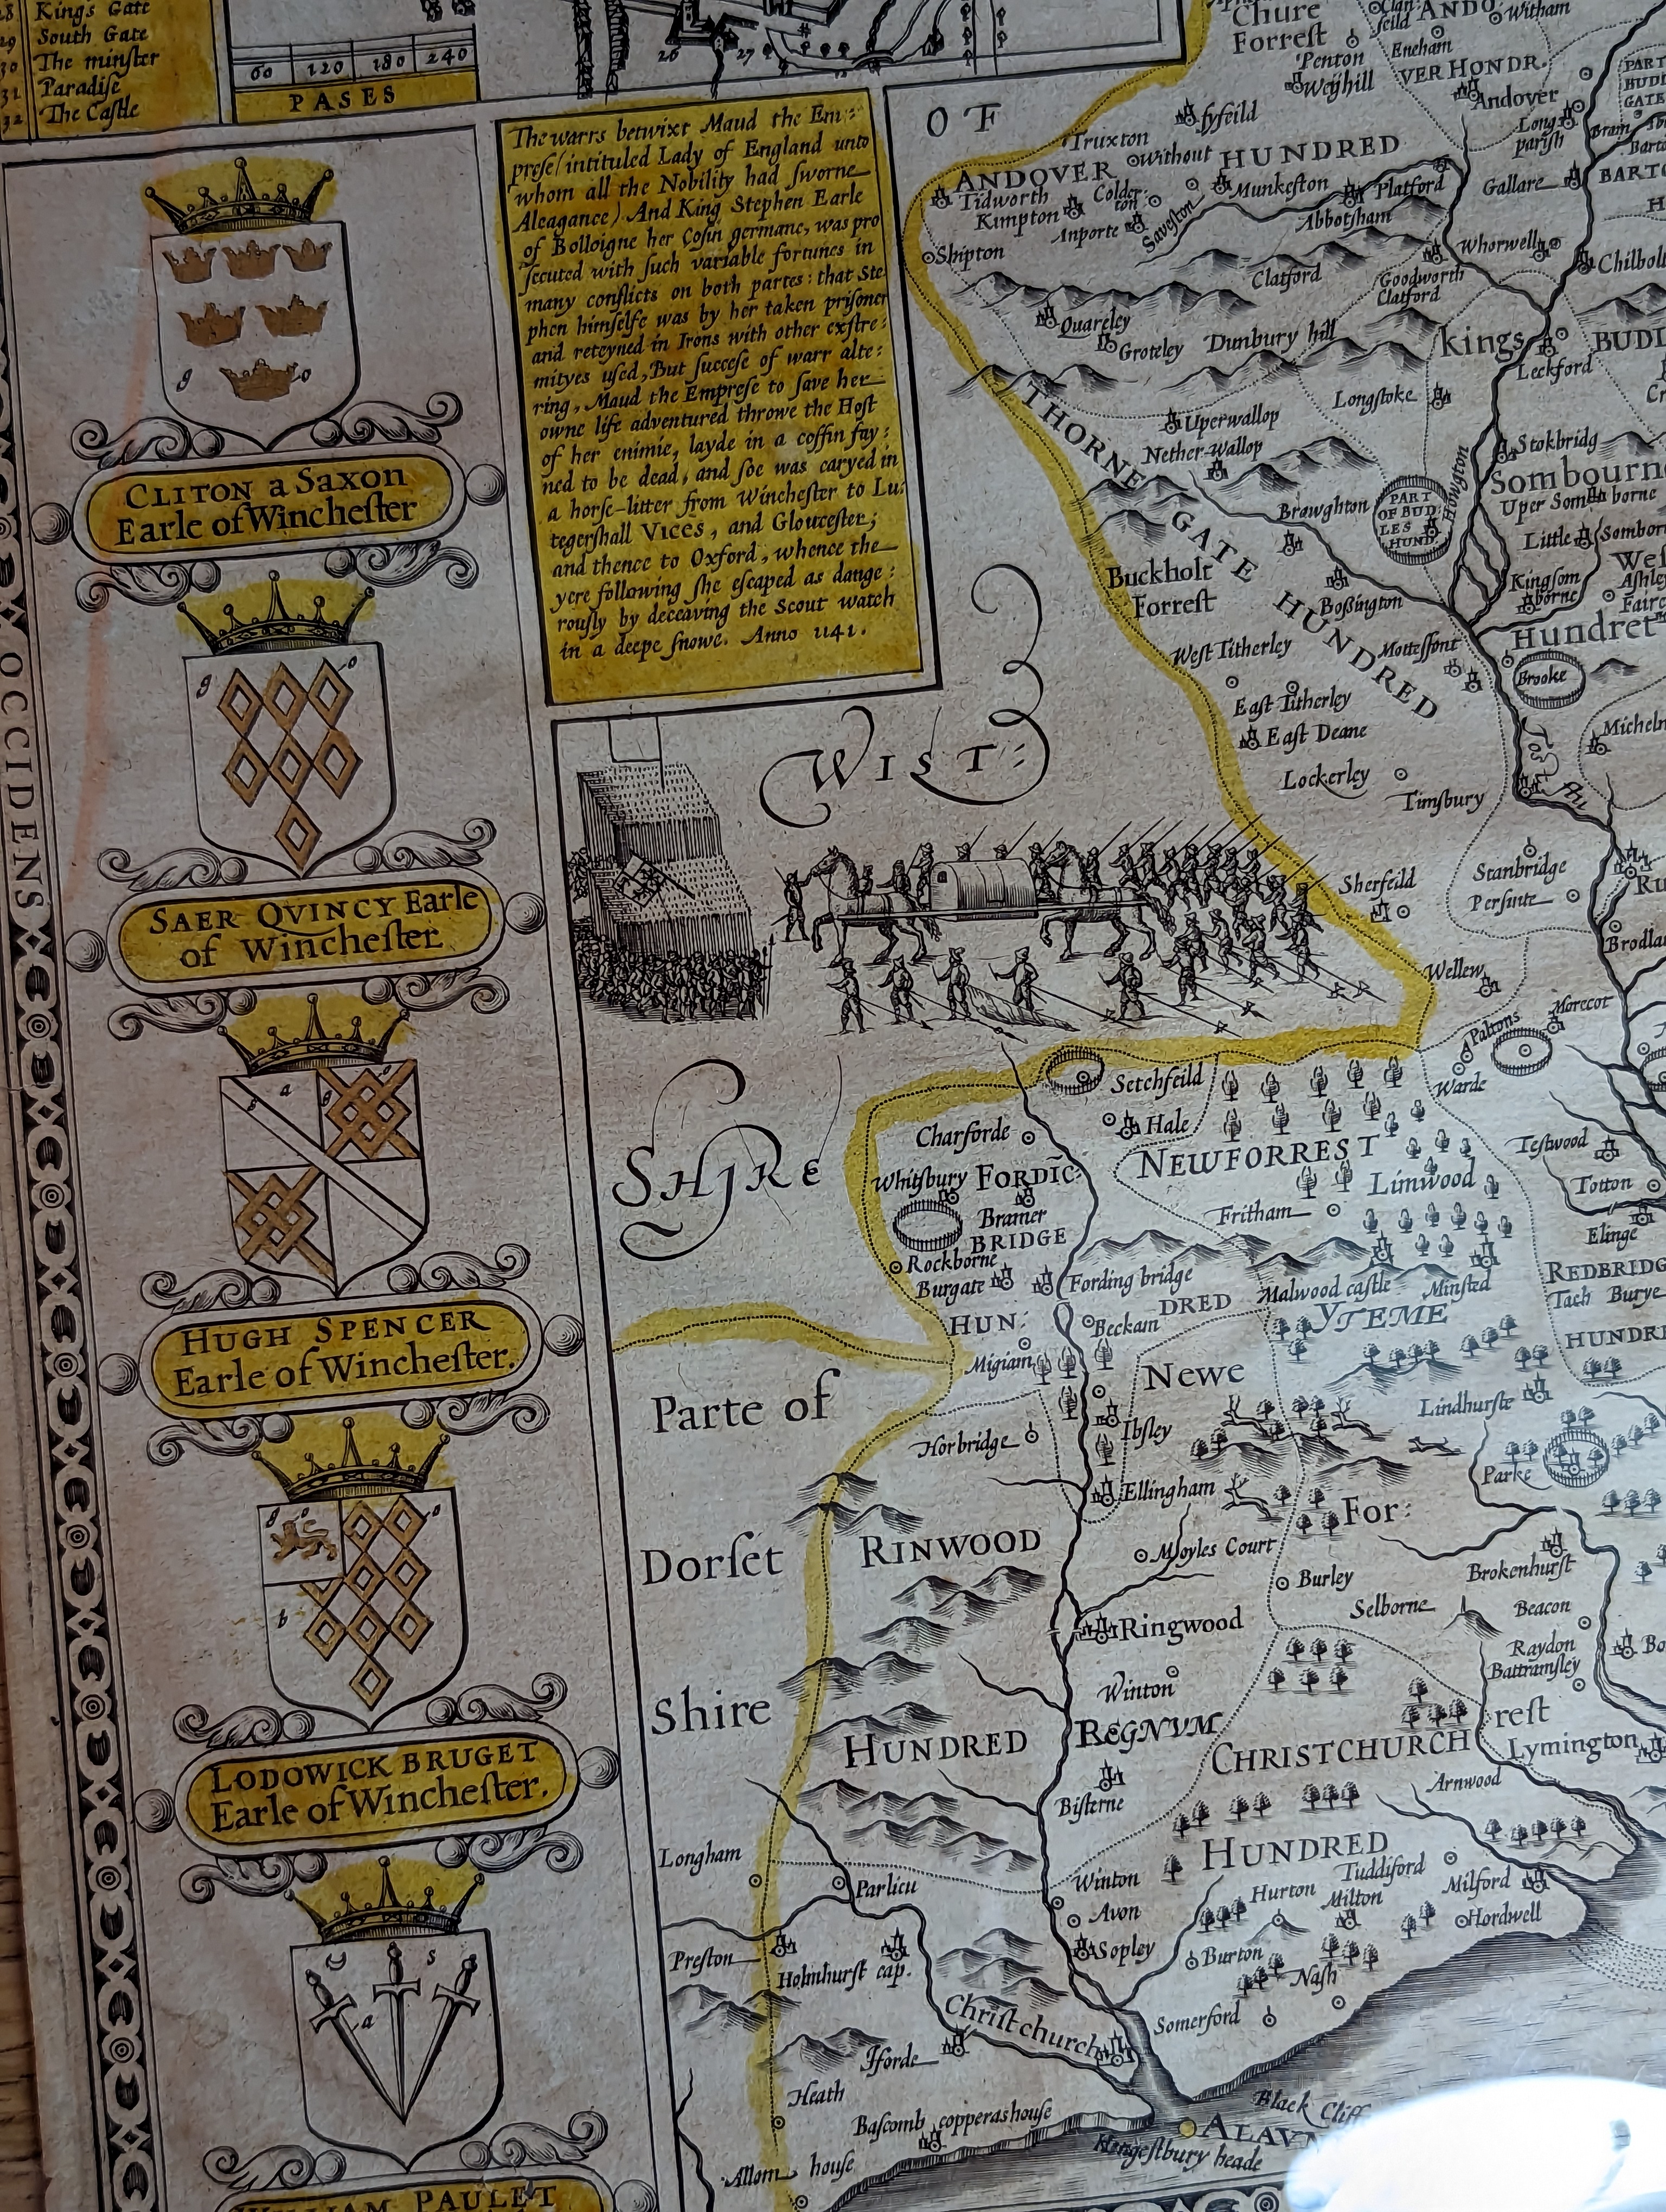 28 Kings Gate
29 South Gate
30 The minſter
31 Paradiſe
32 The Caſtle
60 120 180 240
PASES
26 27
The warrs betwixt Maud the Em:
preſe (intituled Lady of England unto
whom all the Nobility had ſworne
Aleagance) And King Stephen Earle
of Bolloigne her Coſin germane, was pro
ſecuted with ſuch variable fortunes in
many conflicts on both partes: that Ste
phen himſelfe was by her taken priſoner
and reteyned in Irons with other exſtre:
mityes uſed, But ſucceſe of warr alte:
ring, Maud the Empreſe to ſave her
owne life adventured throwe the Hoſt
of her enimie, layde in a coffin fay:
ned to be dead, and ſoe was caryed in
a horſe-litter from Wincheſter to Lu:
tegerſhall VICES, and Glouceſter;
and thence to Oxford, whence the
yere following ſhe eſcaped as dange:
rouſly by deceaving the Scout watch
in a deepe ſnowe. Anno 1141.
OCCIDENS
g o
CLITON a Saxon
Earle of Wincheſter
g o
SAER QVINCY Earle
of Wincheſter
s a g o
HUGH SPENCER
Earle of Wincheſter.
g o o
b
LODOWICK BRUGET
Earle of Wincheſter.
s
a
WILLIAM PAULET
OF
WIST:
SHIRE
Parte of
Dorſet
Shire
Chure
Forreſt
Clan
feild
ANDO
VER HONDR.
Witham
Eneham
Penton
Weyhill
Andover
PART
BUDL
GATE
Long
pariſh
Bram
Barto
BARTO
H
fyfeild
Truxton
ANDOVER without HUNDRED
Tidworth
Kimpton
Colder:
ton
Anporte
Saveston
Munkeſton
Platford
Abbotſham
Gallare
Shipton
Clatford
Goodworth
Clatford
Whorwell
Chilbol
Quareley
Groteley
Dunbury hill
Kings
BUDL
Leckford
THORNE GATE HUNDRED
Uperwallop
Nether-Wallop
Longſtoke
Stokbridg
Sombourn
Houghton
Uper Somborne
Browghton
PART
OF BUD:
LES
HUND.
Little Sombor
Weſ
Kingſom
borne
Aſhle
Faire
Hundret
Buckholt
Forreſt
Boſsington
Motteſfont
Brooke
West Titherley
East Titherley
East Deane
Lockerley
Timſbury
Michelm
Teſt Flu
Stanbridge
Perſinte
Ru
Brodla
Sherfeild
Wellew
Paltons
Morecot
Warde
Setchfeild
Hale
NEWFORREST
Limwood
Fritham
Teſtwood
Totton
Elinge
Charforde
Whitſbury
FORDIC:
Bramer
BRIDGE
Rockborne
Burgate
Fording bridge
HUN:
DRED
Beckam
Migiam
Malwood caſtle
Minsted
YTEME
REDBRIDG
Tach Burye
HUNDRE
Newe
Lindhurſte
Parke
Ibſley
Horbridge
Ellingham
For:
RINWOOD
Moyles Court
Burley
Brokenhurſt
Selborne
Beacon
Raydon
Battramſley
Bo
Ringwood
Winton
HUNDRED
REGNVM
CHRISTCHURCH
reſt
Lymington
Arnwood
Biſterne
HUNDRED
Tuddiford
Longham
Parlicu
Winton
Avon
Hurton
Milton
Milford
Hordwell
Preſton
Holmhurſt cap.
Sopley
Burton
Naſh
Chriſtchurch
Somerford
Iforde
Heath
Baſcomb copperashouſe
Black Cliff
ALAVN
Hengeſtbury heade
Allom houſe